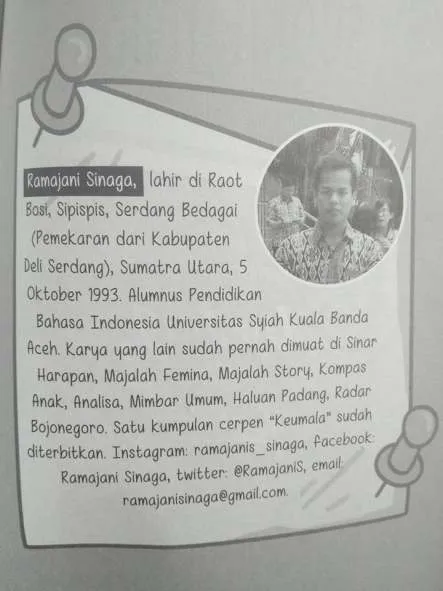 Ramajani Sinaga, lahir di Raot
Bosi, Sipispis, Serdang Bedagai
(Pemekaran dari Kabupaten
Deli Serdang), Sumatra Utara, 5
Oktober 1993. Alumnus Pendidikan
Bahasa Indonesia Universitas Syiah Kuala Banda
Aceh. Karya yang lain sudah pernah dimuat di Sinar
Harapan, Majalah Femina, Majalah Story, Kompas
Anak, Analisa, Mimbar Umum, Haluan Padang, Radar
Bojonegoro. Satu kumpulan cerpen "Keumala" sudah
diterbitkan. Instagram: ramajanis_sinaga, facebook:
Ramajani Sinaga, twitter: @RamajaniS, email:
ramajanisinaga@gmail.com.